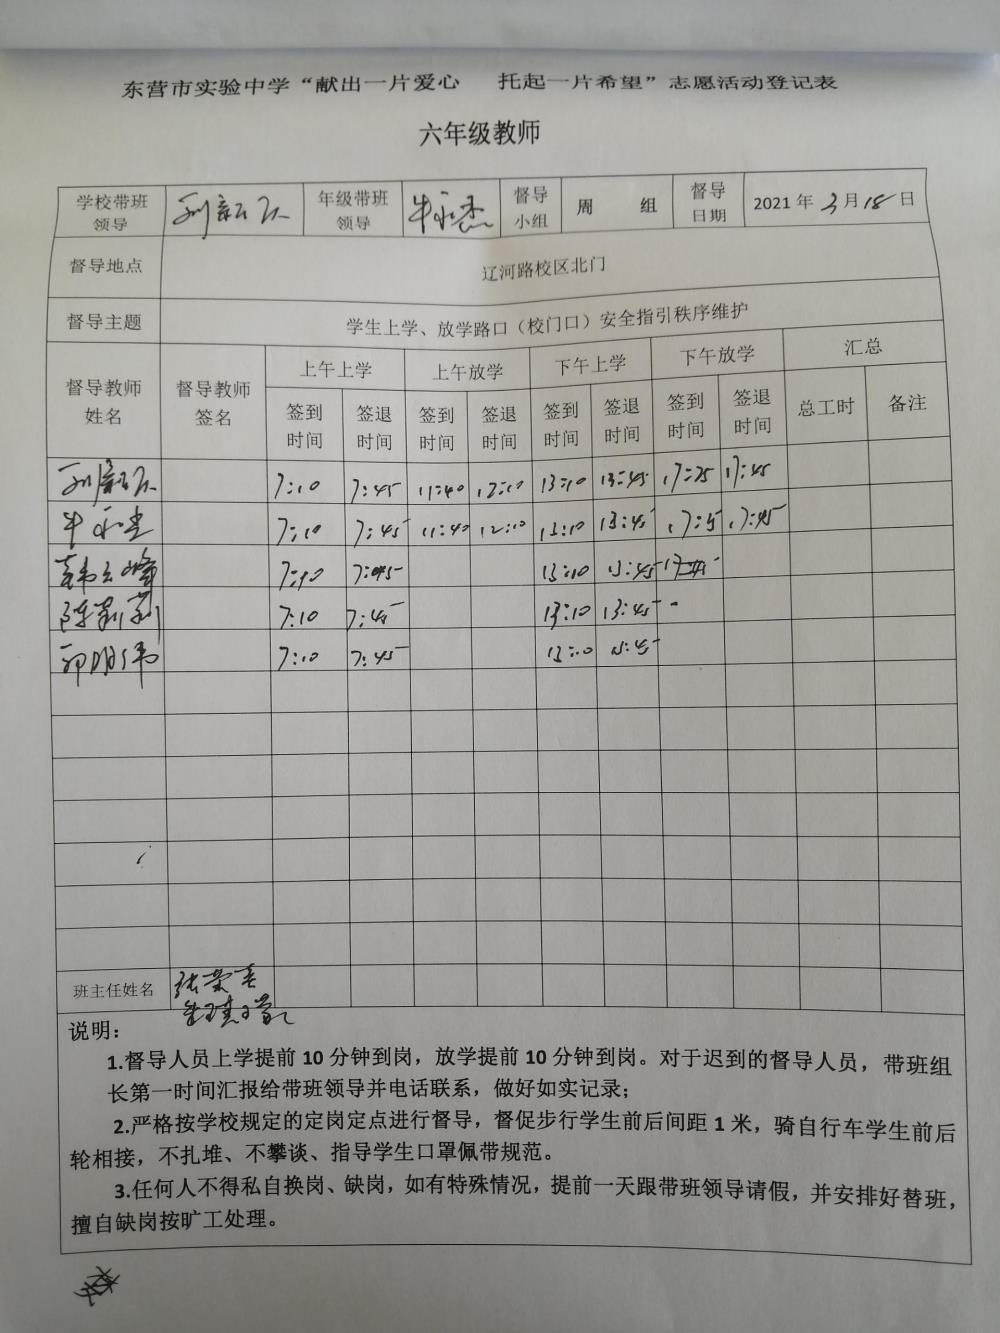 东营市实验中学“献出一片爱心 托起一片希望”志愿活动登记表
六年级教师
学校带班领导 年级带班领导 督导小组 周 组 督导日期 2021年3月18日
督导地点 辽河路校区北门
督导主题 学生上学、放学路口（校门口）安全指引秩序维护
督导教师姓名 督导教师签名 上午上学 上午放学 下午上学 下午放学 汇总
签到时间 签退时间 签到时间 签退时间 签到时间 签退时间 签到时间 签退时间 总工时 备注
7:10 7:45 11:40 12:10 13:10 13:45 17:25 17:45
7:10 7:45 11:40 12:10 13:10 13:45 17:45
7:10 7:45 13:10 13:45
陈莉莉 7:10 7:45 13:10 13:45
7:10 7:45 13:10
班主任姓名
说明：
1.督导人员上学提前10分钟到岗，放学提前10分钟到岗。对于迟到的督导人员，带班组
长第一时间汇报给带班领导并电话联系，做好如实记录；
2.严格按学校规定的定岗定点进行督导，督促步行学生前后间距1米，骑自行车学生前后
轮相接，不扎堆、不攀谈、指导学生口罩佩带规范。
3.任何人不得私自换岗、缺岗，如有特殊情况，提前一天跟带班领导请假，并安排好替班，
擅自缺岗按旷工处理。